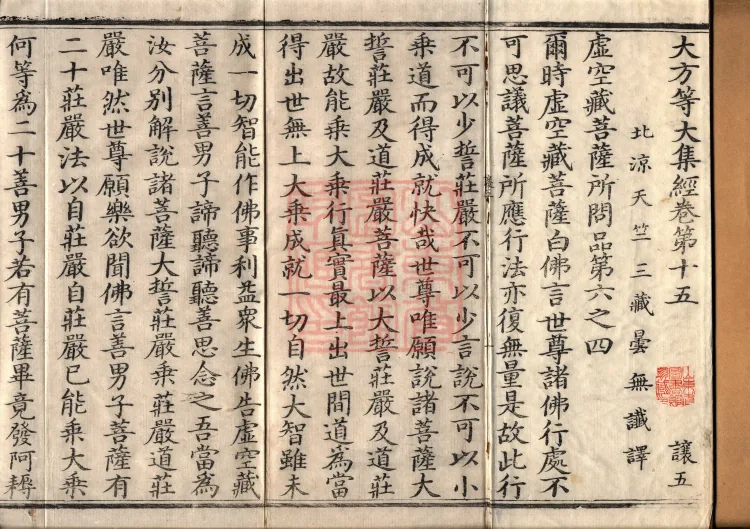 大方等大集經卷第十五
讓五
北涼天竺三藏曇無讖譯
虛空藏菩薩所問品第六之四
爾時虛空藏菩薩白佛言世尊諸佛行處不
可思議菩薩所應行法亦復無量是故此行
不可以少誓莊嚴不可以少言說不可以小
乘道而得成就快哉世尊唯願說諸菩薩大
誓莊嚴及道莊嚴菩薩以大誓莊嚴及道莊
嚴故能乘大乘行真實最上出世間道為當
得出世無上大乘成就一切自然大智雖未
成一切智能作佛事利益眾生佛告虛空藏
菩薩言善男子諦聽諦聽善思念之吾當為
汝分別解說諸菩薩大誓莊嚴乘莊嚴道莊
嚴唯然世尊願樂欲聞佛言善男子菩薩有
二十莊嚴法以自莊嚴自莊嚴已能乘大乘
何等為二十善男子若有菩薩畢竟發阿耨